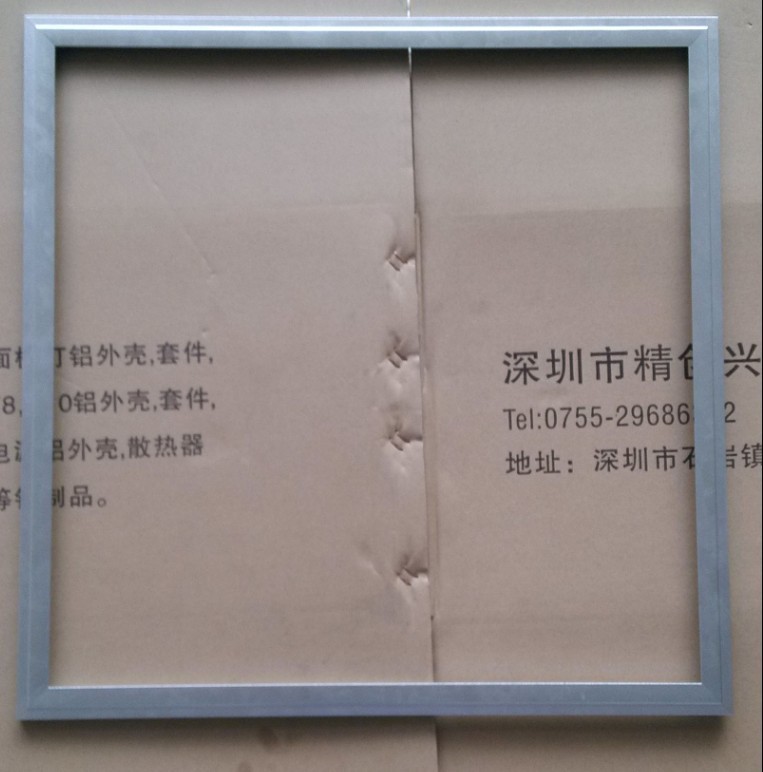 灯铝外壳,套件,
8, 0铝外壳,套件,
铝外壳,散热器
制品。
深圳市精创兴
Tel:0755-29686 2
地址：深圳市石岩镇